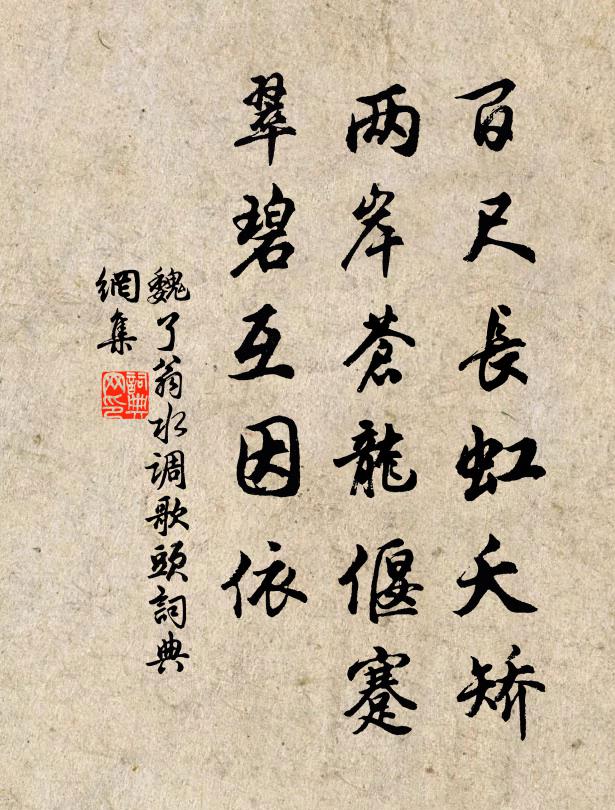 百尺長虹夭矯
两岸蒼龍偃蹇
翠碧互因依
魏了翁水调歌頭詞典
網集
詞典
网印